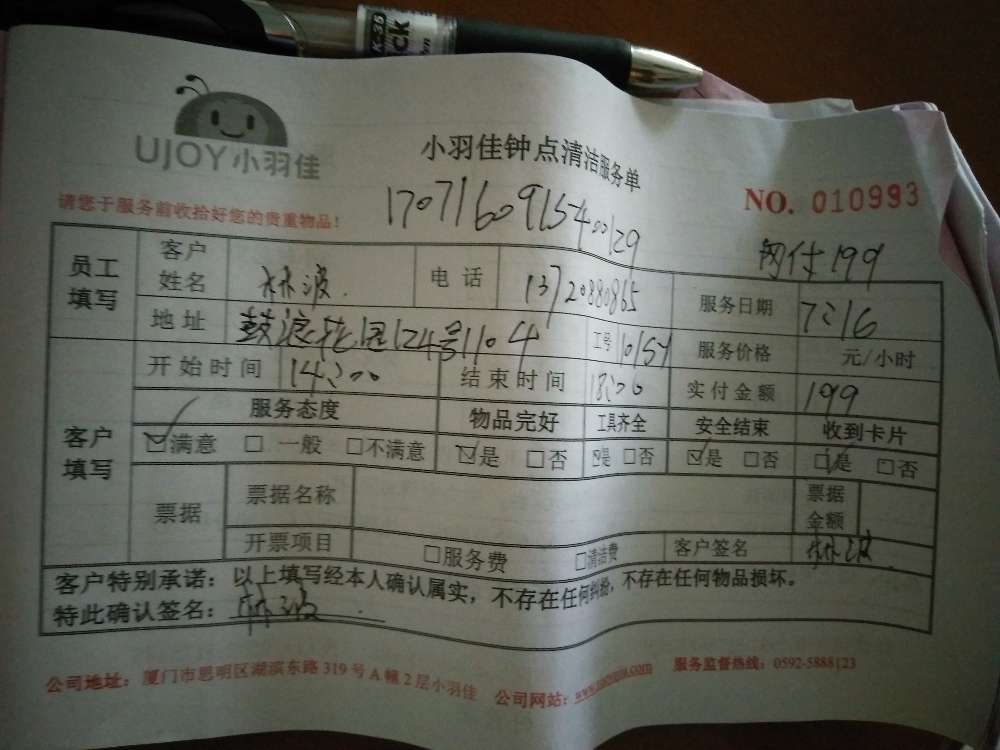 K-35
ck
UJOY小羽佳
小羽佳钟点清洁服务单
请您于服务前收拾好您的贵重物品!
NO. 010993
1707160915400129
网付199
员工填写 客户姓名 林波 电话 13720880865 服务日期 7:16
地址 鼓浪花园124号1104 工号 10154 服务价格 元/小时
客户填写 开始时间 14:00 结束时间 18:00 实付金额 199
服务态度 物品完好 工具齐全 安全结束 收到卡片
☑满意 □一般 □不满意 ☑是 □否 ☑是 □否 ☑是 □否 ☑是 □否
票据 票据名称 票据金额
开票项目 □服务费 □清洁费 客户签名 林波
客户特别承诺:以上填写经本人确认属实,不存在任何纠纷,不存在任何物品损坏。
特此确认签名:林波
公司地址:厦门市思明区湖滨东路319号A幢2层小羽佳 公司网站: 服务监督热线:0592-5888123